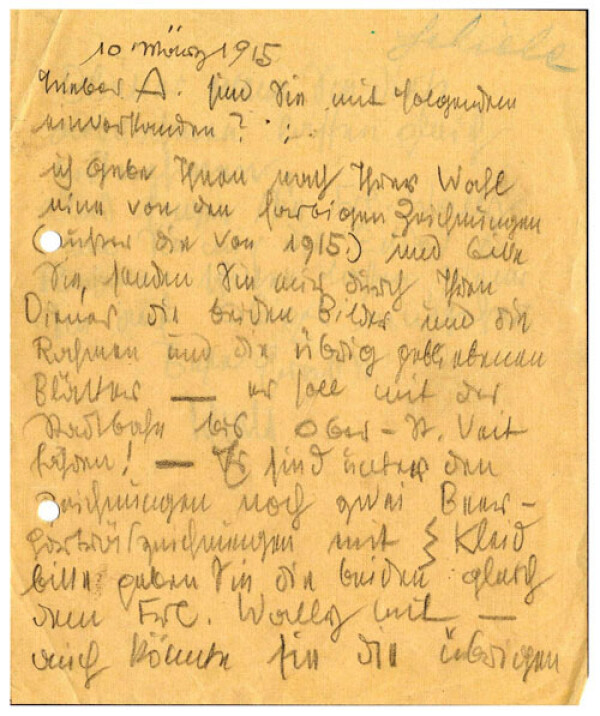 Schiele
10 März 1915
Lieber A. sind Sie mit folgendem
einverstanden? :
ich gebe Ihnen nach Ihrer Wahl
eine von den farbigen Zeichnungen
(außer die von 1915) und bitte
Sie, senden Sie mir durch Ihren
Diener die beiden Bilder und die
Rahmen und die übrig gebliebenen
Blätter — er soll mit der
Stadtbahn bis Ober-St. Veit
fahren! — Es sind unter den
Zeichnungen noch zwei Beer-
porträtzeichnungen mit Kleid
bitte geben Sie die beiden gleich
dem Frl. Wally mit —
auch könnte sie die übrigen